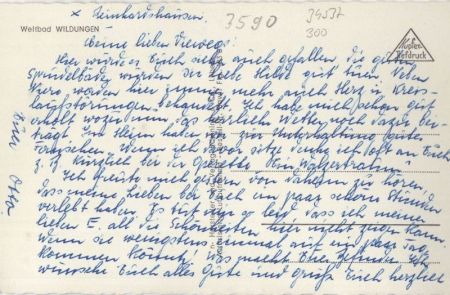 x Reinhardshausen.
7590
34537
300
Weltbad WILDUNGEN
Kupfer-
tiefdruck
Meine lieben Vierwegs!
Hier würde es Euch sicher auch gefallen, die
Sprudelbäder würden der liebe Hilde gut tun. Neben
Niere werden hier immer mehr auch Herz u. Kreis-
laufstörungen behandelt. Ich habe mich schon gut
erholt wozu nun das herrliche Wetter noch dazu bei-
trägt. Im Heim haben wir zur Unterhaltung gutes
Fernsehen. Wenn ich davor sitze denke ich oft an Euch
z. B. kürzlich bei der Operette Ein Walzertraum.
Ich freute mich gestern von daheim zu hören,
dass meine Lieben bei Euch ein paar schöne Stunden
verlebt haben. Es tut mir so leid, dass ich meiner
lieben E. all die Schönheiten hier nicht zeigen kann.
Wenn sie wenigstens einmal auf ein paar Tage
kommen könnte! Was macht Eure Gesundheit? Ich
wünsche Euch alles Gute und grüße Euch herzlich
Euer Otto